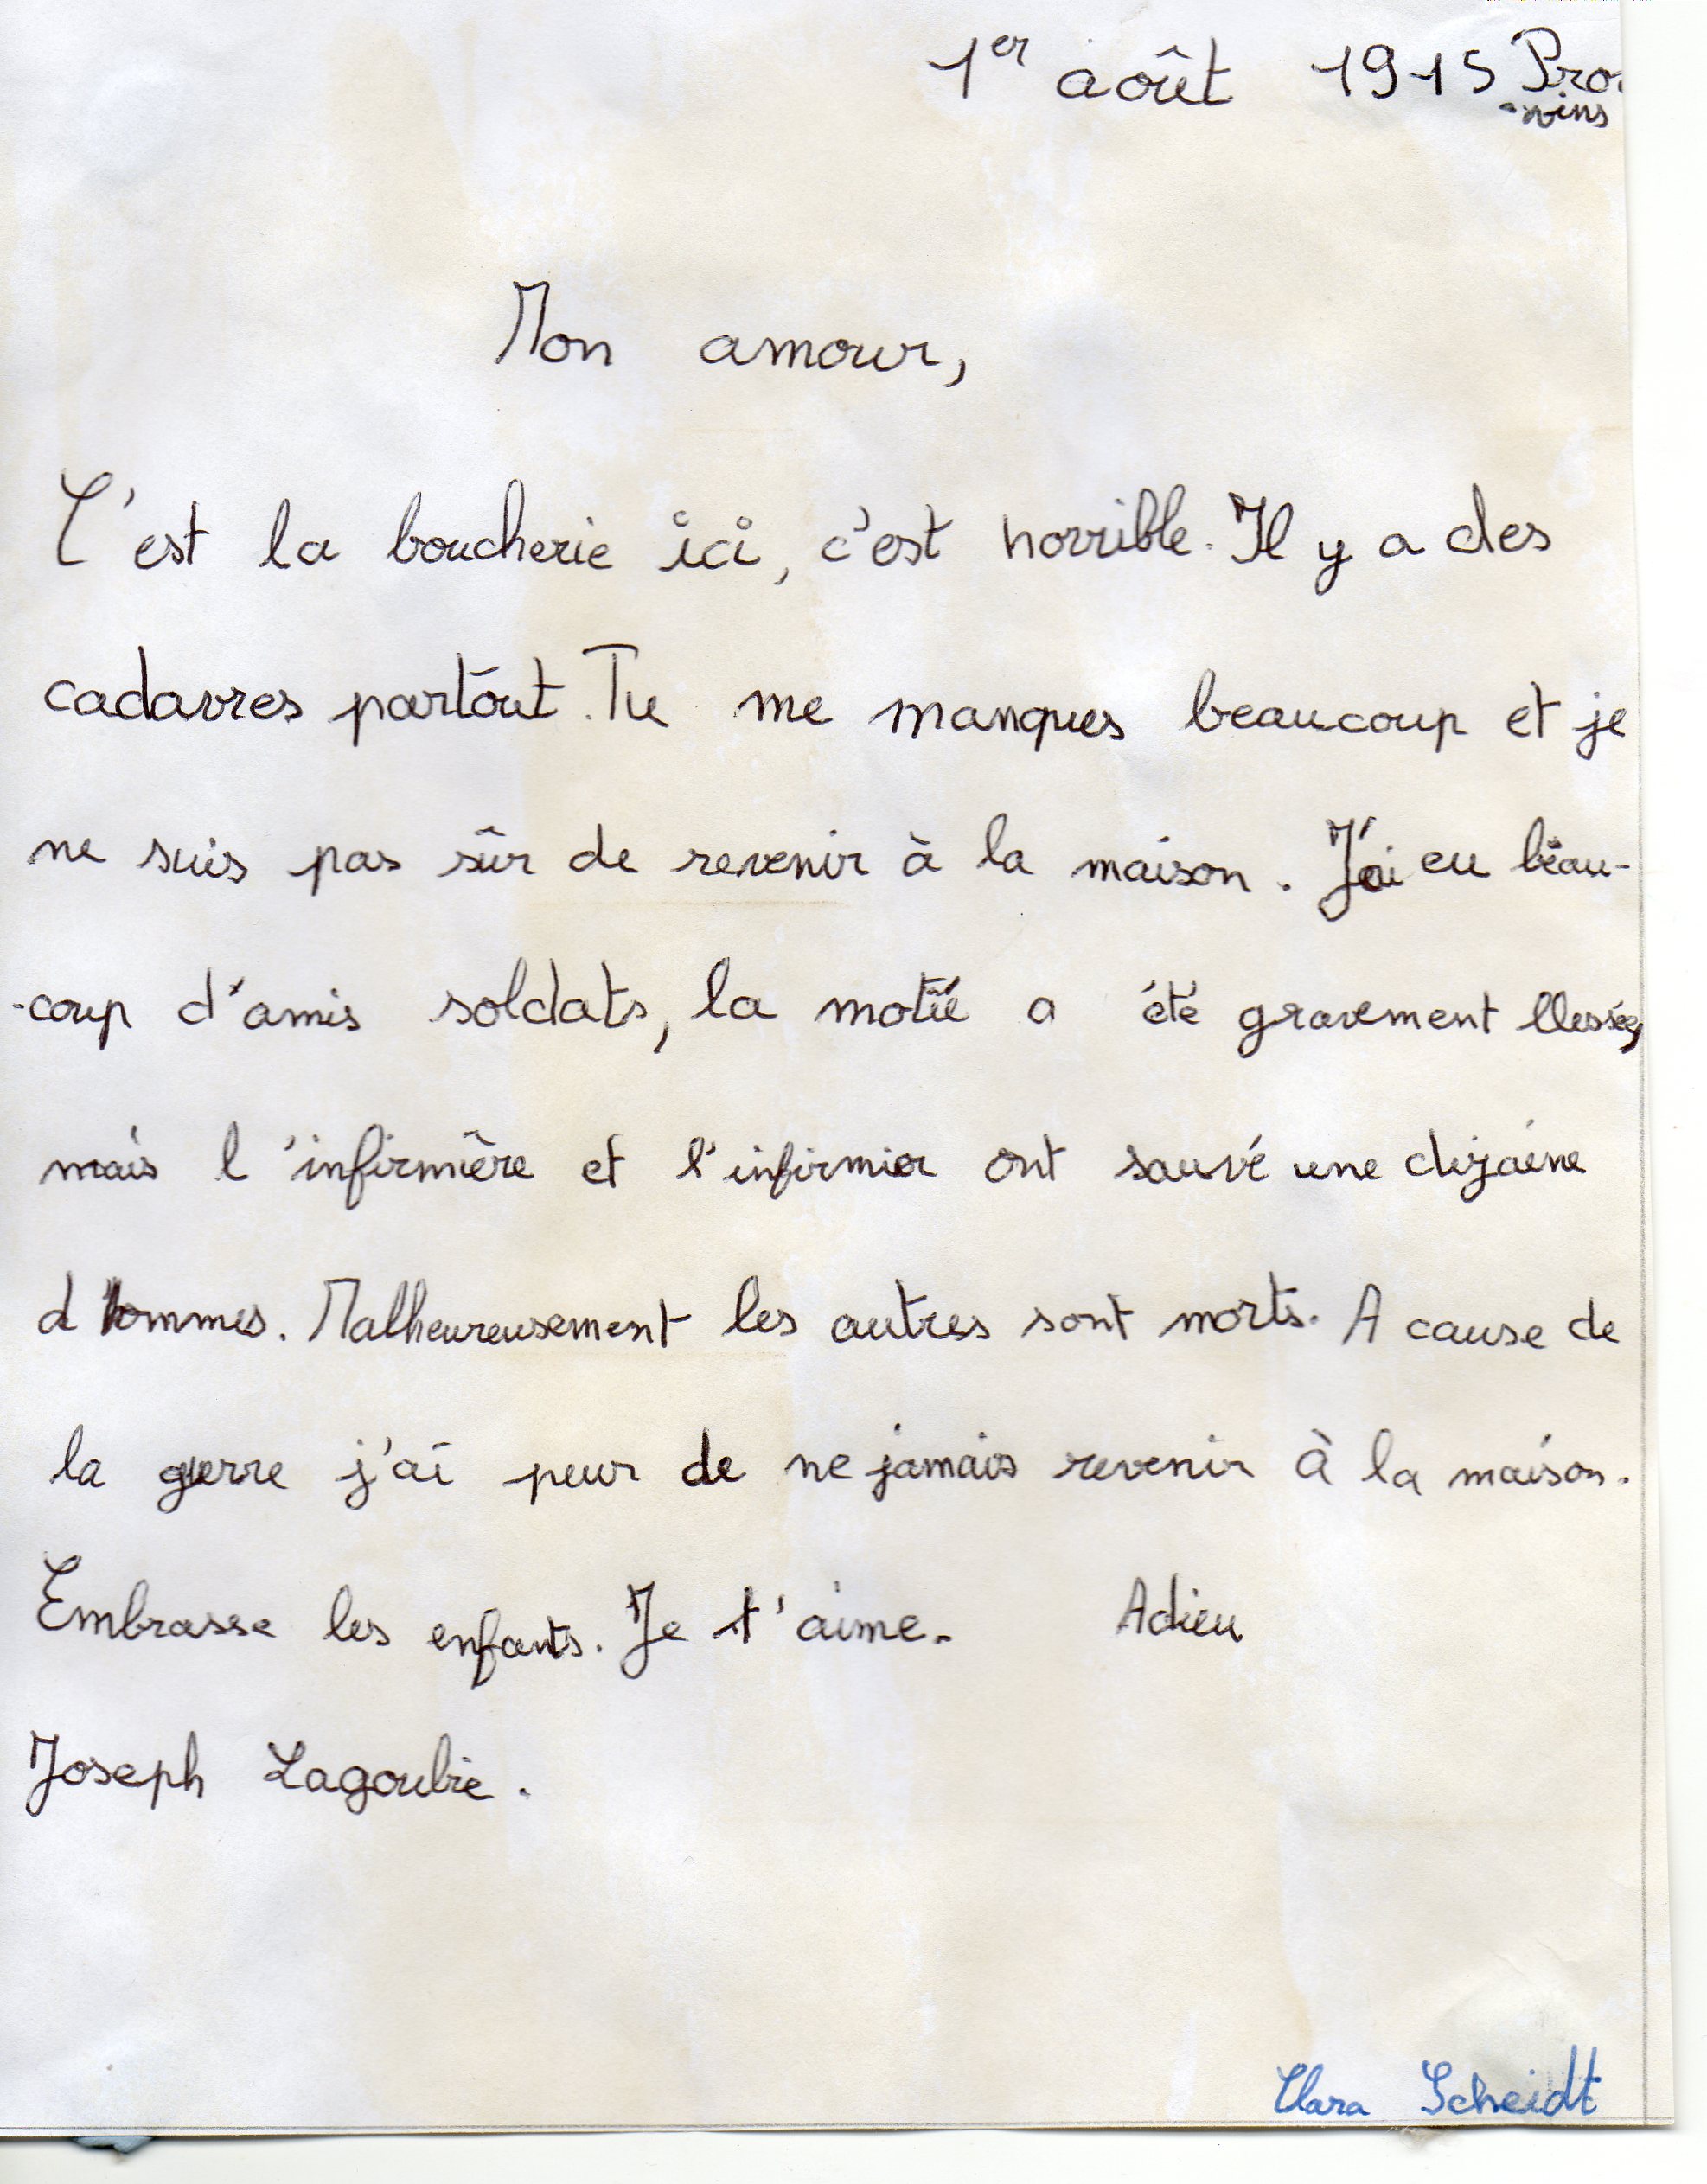 1er août 1915 Pro-
-vins
Mon amour,
C'est la boucherie ici, c'est horrible. Il y a des
cadavres partout. Tu me manques beaucoup et je
ne suis pas sûr de revenir à la maison. J'ai eu beau-
-coup d'amis soldats, la motié a été gravement blessée,
mais l'infirmière et l'infirmier ont sauvé une dizaine
d'hommes. Malheureusement les autres sont morts. A cause de
la guerre j'ai peur de ne jamais revenir à la maison.
Embrasse les enfants. Je t'aime. Adieu
Joseph Lagoubie.
Clara Scheidt